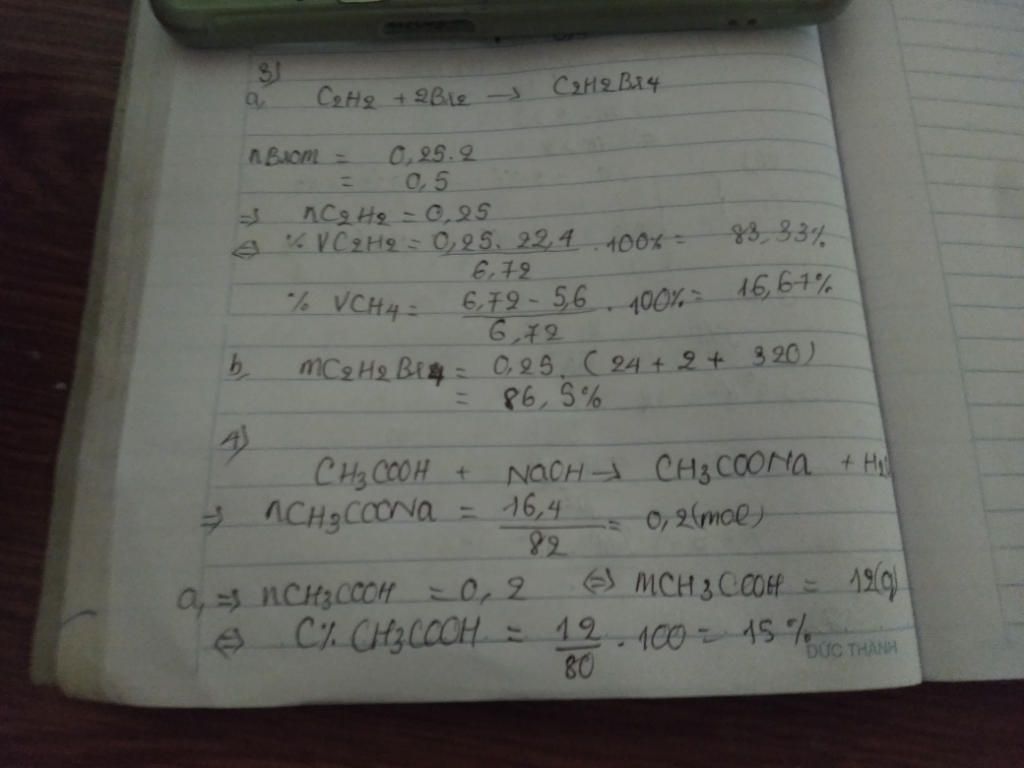 3)
a, C2H2 + 2Br2 → C2H2Br4
nBrom = 0,25.2
= 0,5
⇒ nC2H2 = 0,25
⇔ % VC2H2 = 0,25. 22,4 / 6,72 . 100% = 83,33%
% VCH4 = 6,72 - 5,6 / 6,72 . 100% = 16,67%
b, mC2H2Br4 = 0,25. (24 + 2 + 320)
= 86,5%
4)
CH3COOH + NaOH → CH3COONa + H2
⇒ nCH3COONa = 16,4 / 82 = 0,2(mol)
a, ⇒ nCH3COOH = 0,2 ⇔ mCH3COOH = 12(g)
⇔ C% CH3COOH = 12 / 80 . 100 = 15%
ĐỨC THÀNH